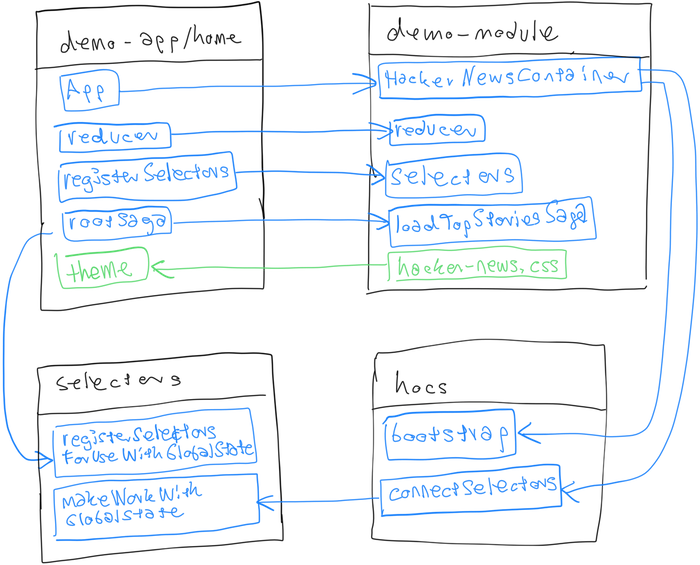 demo-app/home
App
reducer
registerSelectors
rootSaga
theme
demo-module
HackerNewsContainer
reducer
selectors
loadTopStoriesSaga
hacker-news.css
selectors
registerSelectors
ForUseWithGlobalState
makeWorkWith
GlobalState
hocs
bootstrap
connectSelectors